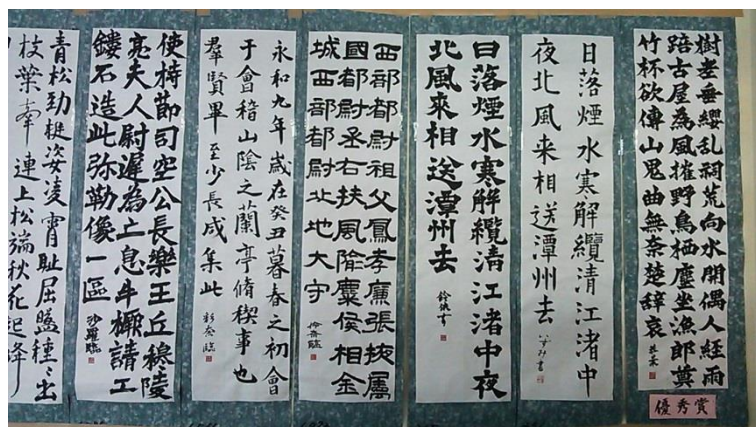 樹老垂纓乱祠荒向水開偶人経雨
踣古屋為風摧野鳥栖塵坐漁郎奠
竹杯欲傳山鬼曲無奈楚辞哀
優秀賞
日落煙水寒解纜清江渚中
夜北風来相送潭州去
日落煙水寒解纜清江渚中夜
北風來相送潭州去
西部都尉祖父鳳孝廉張掖屬
國都尉丞右扶風隃麋侯相金
城西部都尉北地大守
永和九年歳在癸丑暮春之初會
于會稽山陰之蘭亭脩稧事也
羣賢畢至少長咸集此
使持節司空公長樂王丘穆陵
亮夫人尉遲為亡息牛橛請工
鏤石造此弥勒像一區 沙羅臨
青松勁挺姿凌霄恥屈盤種種出
枝葉牽連上松端秋花起絳